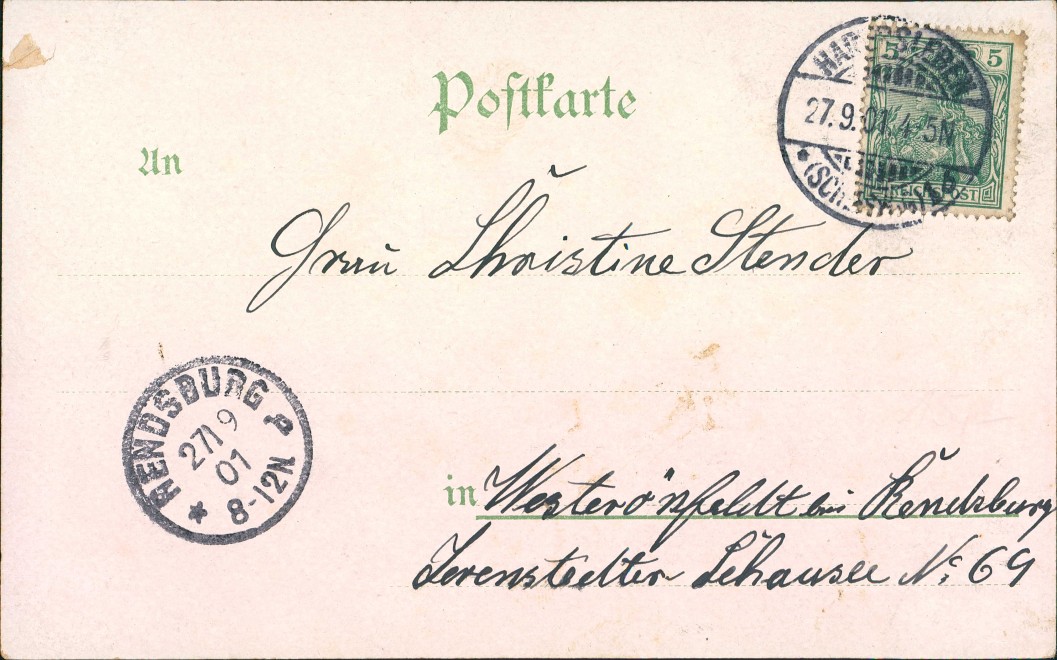 Postkarte
HADERSLEBEN
27.9.01. 4-5N
* (SCHLESWIG) *
5 5
REICHSPOST
An
Frau Christine Stender
RENDSBURG P
27/9
01
* 8-12N
in Westerönfeldt bei Rendsburg
Jevenstedter Schausee No 69